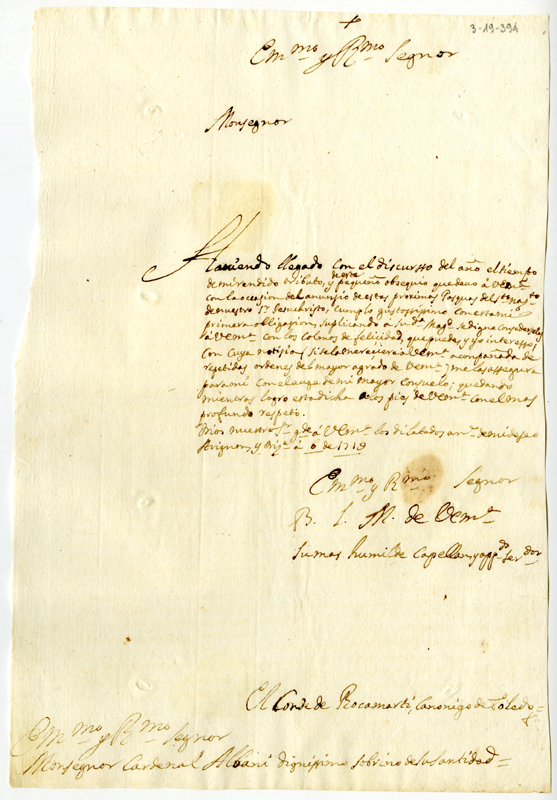 3-19-394
+
Em.mo y R.mo Segnor
Monsegnor
Haviendo llegado con el discursso del año el tiempo
de mi rendido tributo, y de este pequeño obsequio que devo á Vem.a
con la ocasion del anunsio de estas proximas Pasquas del S.to Nag.to
de nuestro S.r Jesuchristo, cumplo gustosissimo con esta mi
primera obligasion, suplicando a Su D.a Mag.d se digne consedersela
á Vem.a con los colmos de felicidad, que puede, y yo interesso,
con cuya notisia, si se la meresiere á Vem.a acompañada de
repetidas ordenes del mayor agrado de Vem.a, me las assegura
para mi con el auge de mi mayor consuelo; quedando
mientras logro esta dicha a los pies de Vem.a con el mas
profundo respeto.
Dios nuestro S.r g.de á Vem.a los dilatados an.s de mi deseo
Avignon, y á 6 de 1719
Em.mo y R.mo Segnor
B. L. M. de Vem.a
su mas humilde Capellan, y app.do ser.dor
El Conde de Rocamarti, Canonigo de Toledo =
Em.mo y R.mo Segnor
Monsegnor Cardenal Albani dignissimo sobrino de su Santidad =